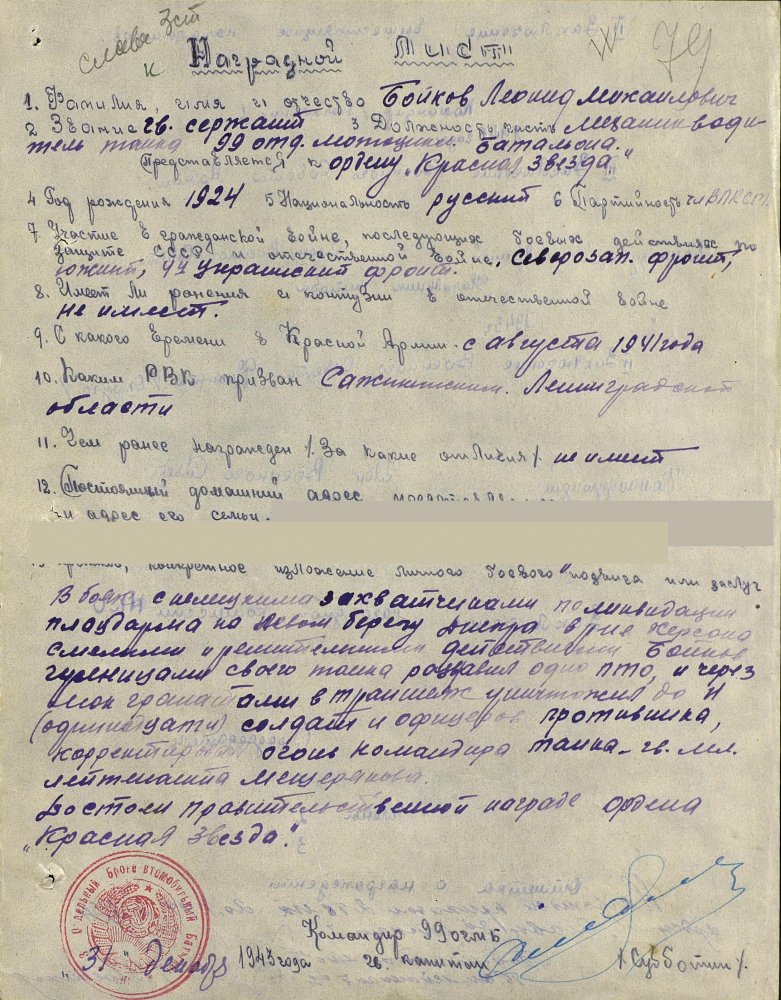 слава 3 ст
к
79
Наградной лист
1. Фамилия, имя и отчество Бойков Леонид Михайлович
2 Звание гв. сержант 3 Должность, часть механик води-
тель танка 99 отд. мотоцикл. батальона.
Представляется к ордену „Красная звезда"
4 Год рождения 1924 5 Национальность русский 6 Партийность чл ВЛКСМ.
7. Участие в гражданской войне, последующих боевых действиях по
защите СССР и отечественной войне. Северозап. фронт,
южный, 4й украинский фронт.
8. Имеет ли ранения и контузии в отечественной войне
не имеет.
9. С какого времени в Красной Армии. с августа 1941 года
10. Каким РВК призван Ленинградской
области
11. Чем ранее награжден /. За какие отличия /. не имеет
12. Постоянный домашний адрес
и адрес его семьи.
конкретное изложение личного боевого подвига или заслуг
В боях с немецкими захватчиками по ликвидации
плацдарма на левом берегу Днепра в р-не Херсона
смелыми и решительными действиями Бойков
гусеницами своего танка раздавил одно ПТО, и через
люк гранатами в траншеях уничтожил до 11
(одиннадцати) солдат и офицеров противника,
корректируя огонь командира танка - гв. мл.
лейтенанта Мещерякова.
Достоин правительственной награде ордена
„Красная Звезда".
Отдельный Бронеавтомобильный Бат
Командир 99 отмб
„31" декабр 1943 года гв капитан /Субботин/.